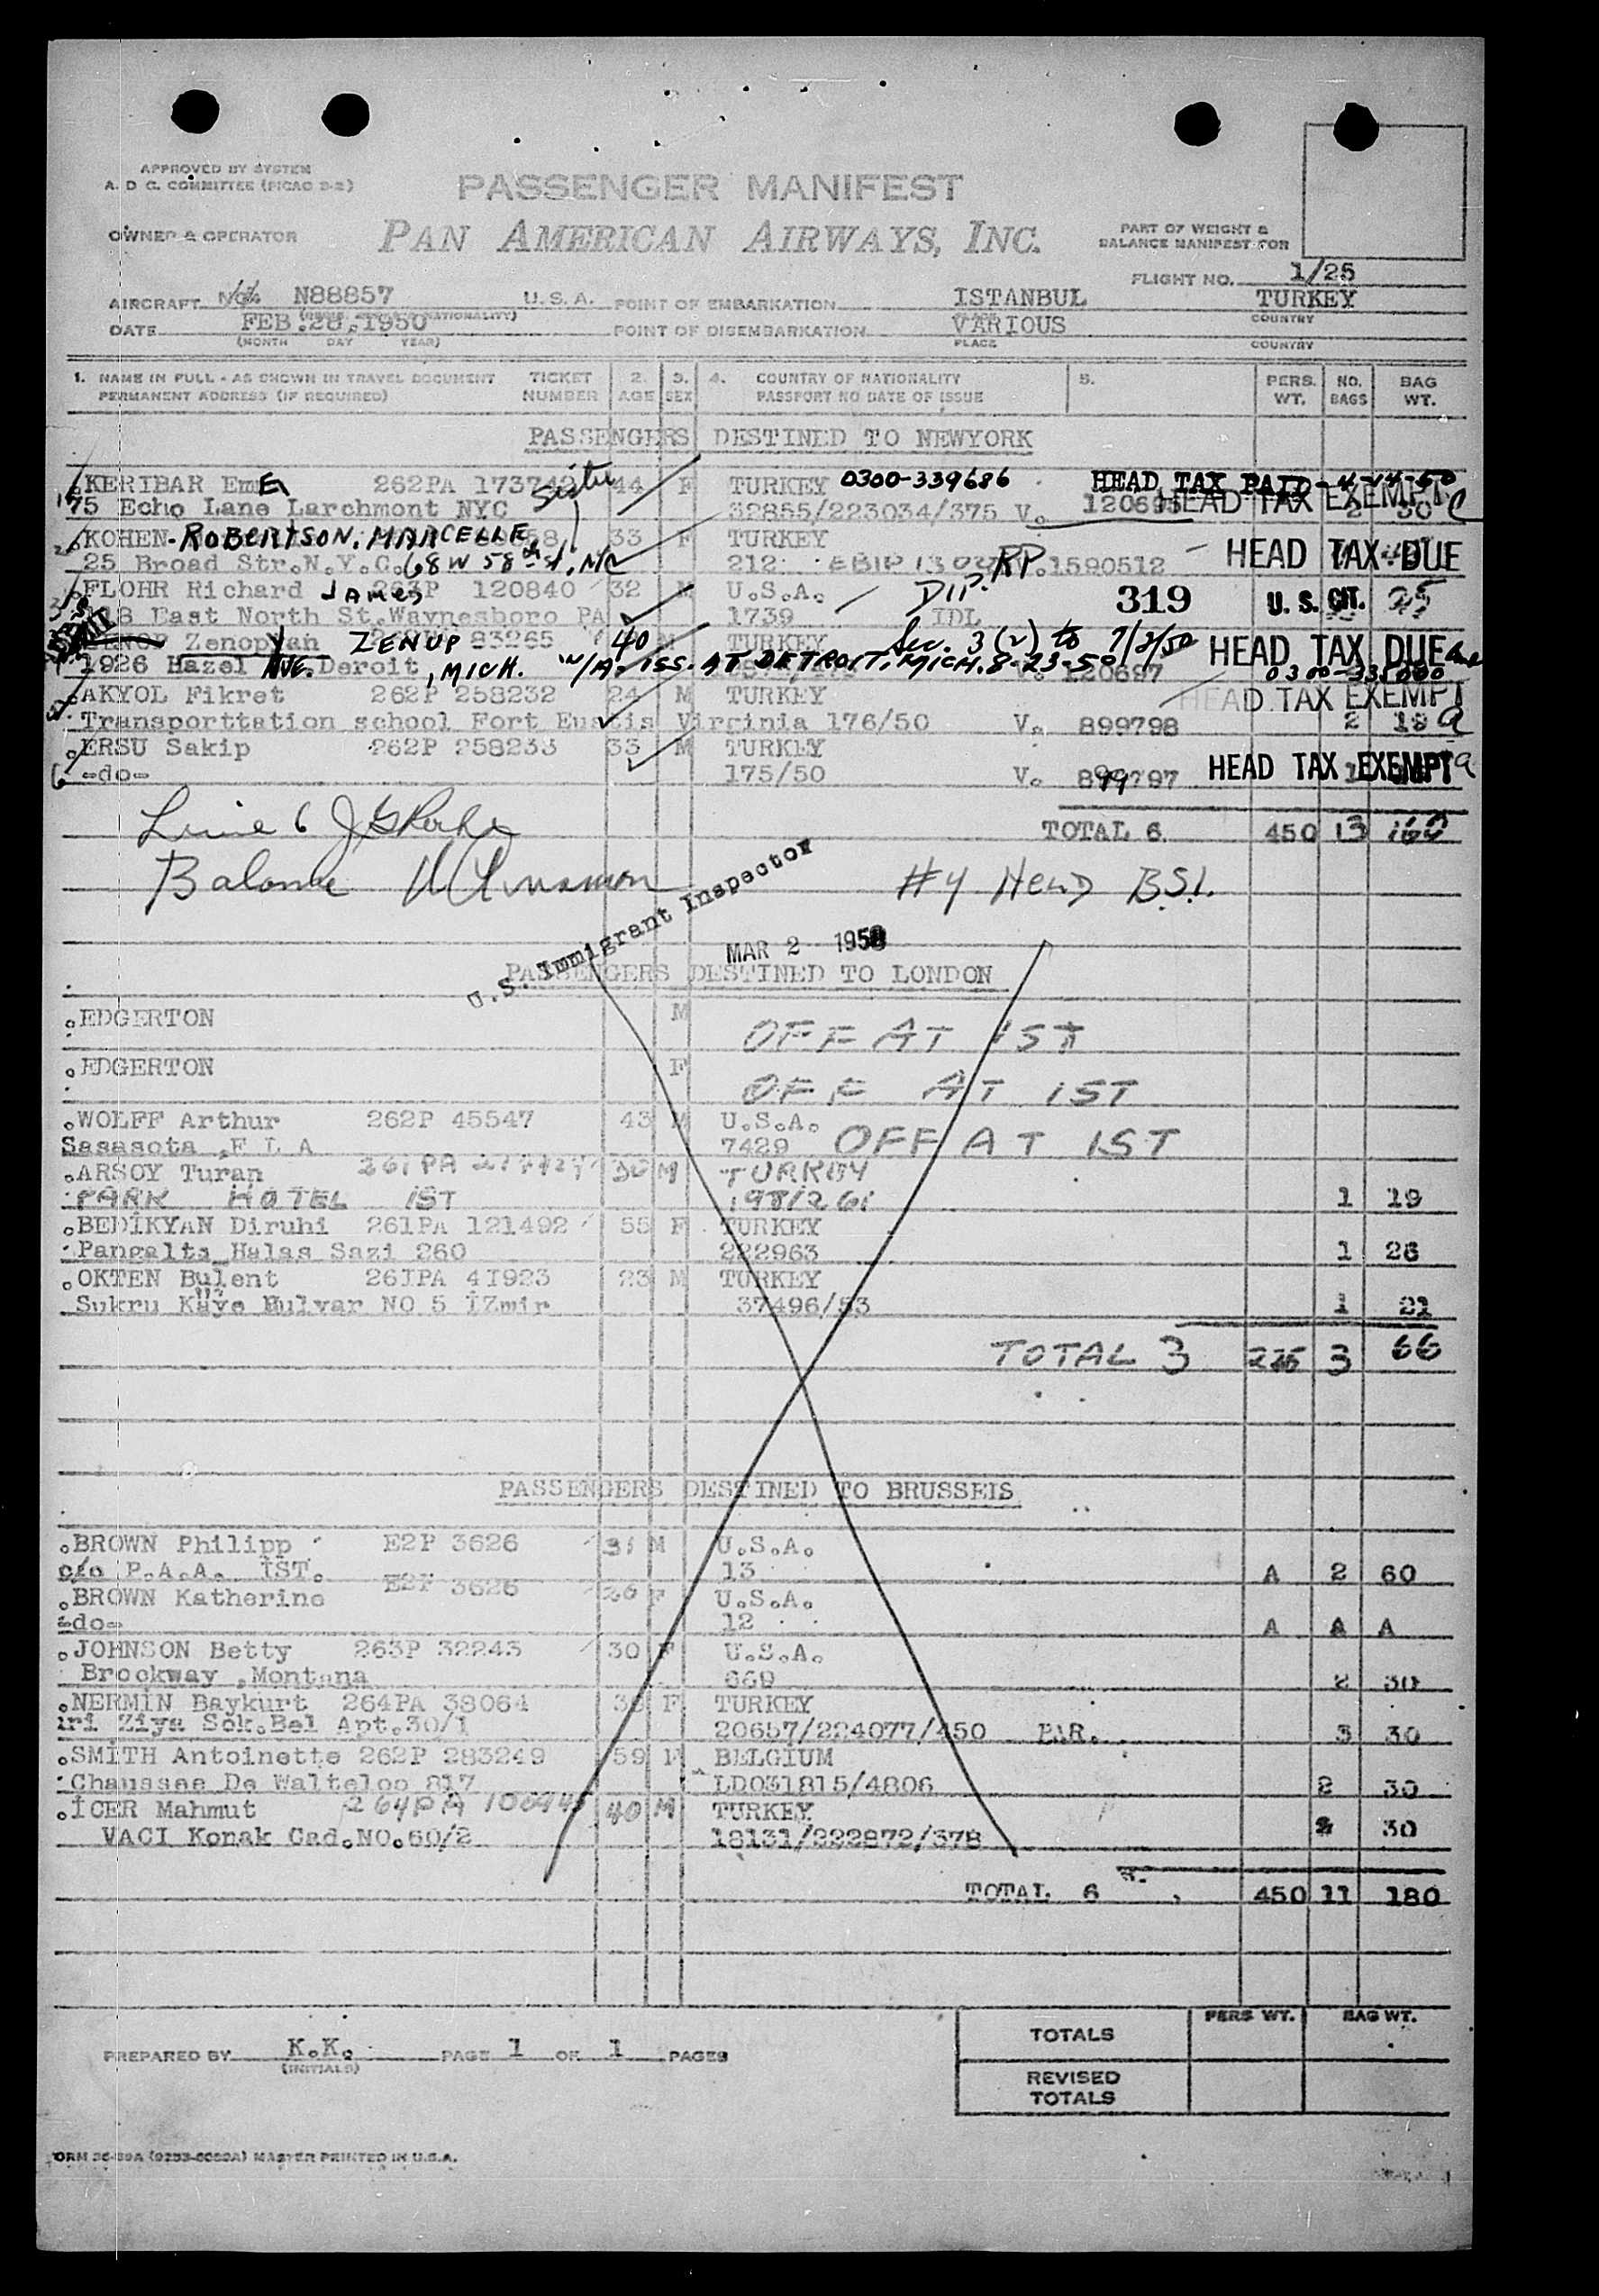 APPROVED BY SYSTEM
A. D C. COMMITTEE (PICAO D-2)
PASSENGER MANIFEST
OWNER & OPERATOR
PAN AMERICAN AIRWAYS, INC.
PART OF WEIGHT &
BALANCE MANIFEST FOR
FLIGHT NO. 1/25
AIRCRAFT N88857 U.S.A. POINT OF EMBARKATION ISTANBUL TURKEY
DATE FEB.28,1950 POINT OF DISEMBARKATION VARIOUS
(MONTH DAY YEAR) PLACE COUNTRY
1. NAME IN FULL - AS SHOWN IN TRAVEL DOCUMENT TICKET 2. 3. 4. COUNTRY OF NATIONALITY 5. PERS. NO. BAG
PERMANENT ADDRESS (IF REQUIRED) NUMBER AGE SEX PASSPORT NO DATE OF ISSUE WT. BAGS WT.
PASSENGERS DESTINED TO NEWYORK
KERIBAR 262PA Sister 44 F TURKEY 0300-339686 HEAD TAX PAID-4-14-50
75 Echo Lane Larchmont NYC 32855/223034/375 V. HEAD TAX EXEMPT
KOHEN-ROBERTSON, MARCELLE 33 F TURKEY HEAD TAX DUE
25 Broad Str.N.Y.C. 68 W 58th st, NYC 212 RP 1590512
FLOHR Richard James 120840 32 M U.S.A. DIP. 319 U. S. CIT.
East North St.Waynesboro PA 1739 IDL
Zenopyan ZENUP 83265 40 M TURKEY Sec. 3(2) to 7/2/50 HEAD TAX DUE
1926 Hazel AVE. Deroit, MICH. W/A. ISS. AT DETROIT, MICH. 8-23-50 V. 120697
AKYOL Fikret 262P 258232 24 M TURKEY HEAD TAX EXEMPT
Transporttation school Fort Eustis Virginia 176/50 V. 899798 2 19 a
ERSU Sakip 262P 258233 33 M TURKEY
6 -do- 175/50 V. 899797 HEAD TAX EXEMPT a
Line 6
TOTAL 6 450 13
Balance
#4 HELD B.S.I.
U.S. Immigrant Inspector
MAR 2 1950
PASSENGERS DESTINED TO LONDON
EDGERTON M OFF AT IST
EDGERTON F OFF AT IST
WOLFF Arthur 262P 45547 43 M U.S.A.
Sasasota ,F L A 7429 OFF AT IST
ARSOY Turan 30 M TURKEY
PARK HOTEL IST 198/261 1 19
BEDİKYAN Diruhi 261PA 121492 55 F TURKEY
Pangaltı Halas Sazi 260 222963 1 26
OKTEN Bulent 26IPA 4I923 23 M TURKEY
Sukru Kaye Bulvar NO 5 İZmir 37496/53 1 21
TOTAL 3 225 3 66
PASSENGERS DESTINED TO BRUSSEIS
BROWN Philipp E2P 3626 31 M U.S.A.
c/o P.A.A. İST. 13 A 2 60
BROWN Katherine E2P 3626 26 F U.S.A.
-do- 12 A A A
JOHNSON Betty 263P 32243 30 F U.S.A.
Brockway ,Montana 669 2 30
NERMİN Baykurt 264PA 38064 F TURKEY
uri Ziya Sok.Bel Apt.30/1 20657/224077/450 PAR. 3 30
SMİTH Antoinette 262P 283249 59 F BELGİUM
Chaussee De Walteloo 817 LD031815/4806 2 30
İCER Mahmut 264PA 40 M TURKEY
VACI Konak Cad.NO.60/2 18131/222872/378 2 30
TOTAL 6 450 11 180
PREPARED BY K.K. PAGE 1 OF 1 PAGES
(INITIALS)
PERS WT. BAG WT.
TOTALS
REVISED
TOTALS
MASTER PRINTED IN U.S.A.